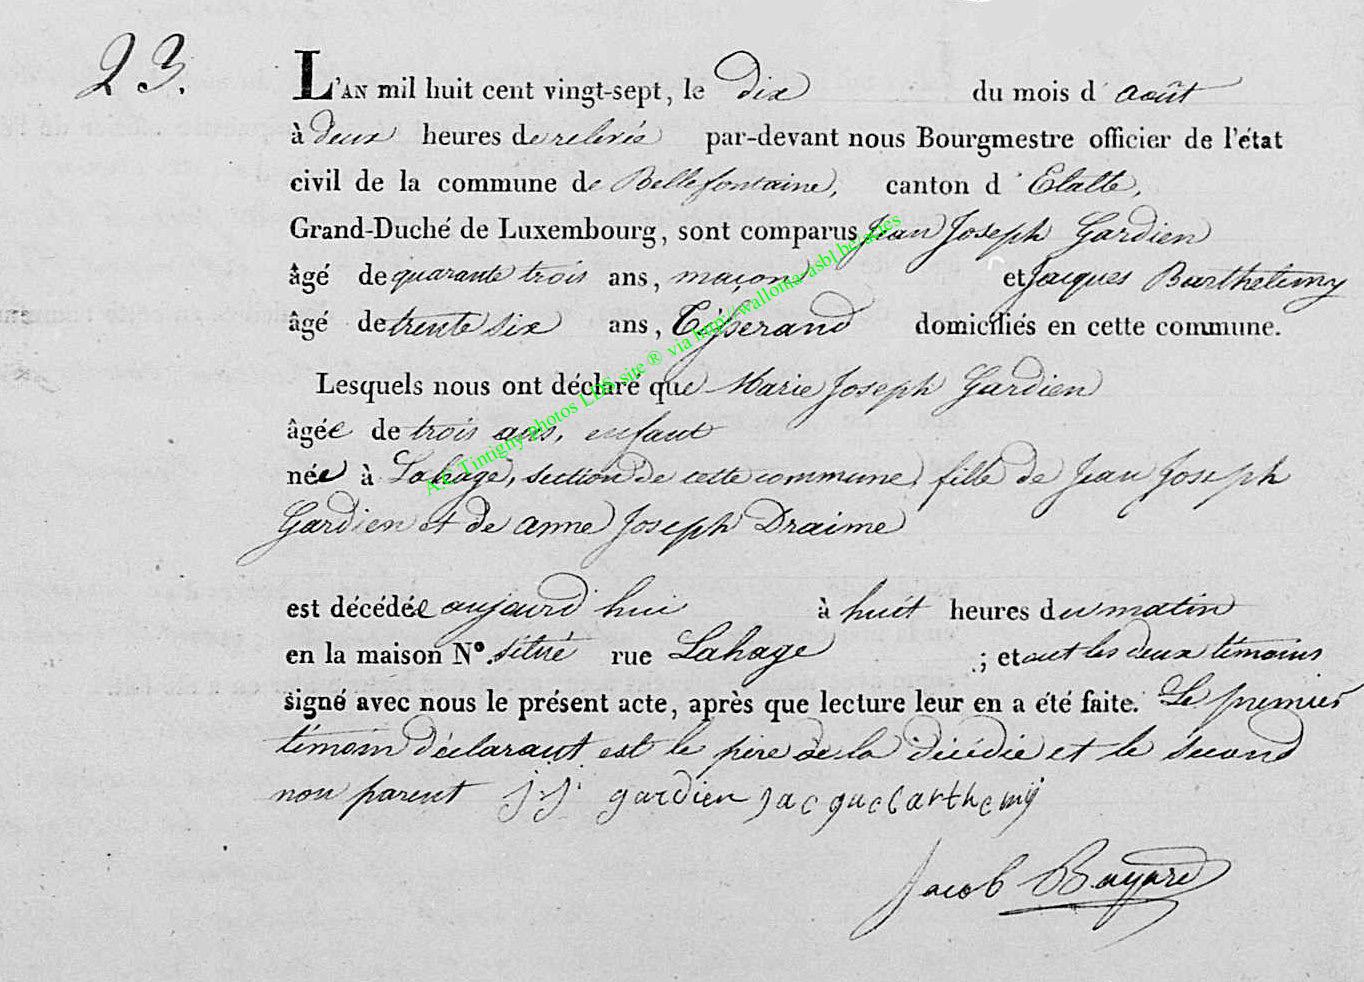 23.
L'AN mil huit cent vingt-sept, le dix du mois d'août
à deux heures de relevée par-devant nous Bourgmestre officier de l'état
civil de la commune de Bellefontaine, canton d'Etalle,
Grand-Duché de Luxembourg, sont comparus Jean Joseph Gardien
âgé de quarante trois ans, maçon et Jacques Barthelemy
âgé de trente six ans, Tisserand domiciliés en cette commune.
Lesquels nous ont déclaré que Marie Joseph Gardien
âgée de trois ans, enfant
née à Lahage, section de cette commune, fille de Jean Joseph
Gardien et de anne Joseph Draime
est décédée aujourd'hui à huit heures du matin
en la maison N°. située rue Lahage ; et ont les deux témoins
signé avec nous le présent acte, après que lecture leur en a été faite. Le premier
témoin déclarant est le père de la décédée et le second
non parent j j gardien jacque barthemy
Jacob Bayard
A.E Tintigny photos LDS site ® via http://wallonia-asbl.be/actes